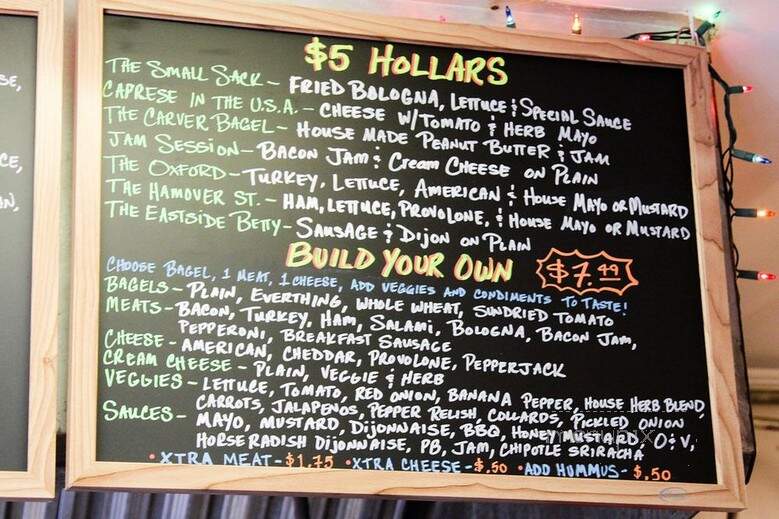 $5 HOLLARS
THE SMALL SACK - FRIED BOLOGNA, LETTUCE & SPECIAL SAUCE
CAPRESE IN THE U.S.A. - CHEESE W/TOMATO & HERB MAYO
THE CARVER BAGEL - HOUSE MADE PEANUT BUTTER & JAM
JAM SESSION - BACON JAM & CREAM CHEESE ON PLAIN
THE OXFORD - TURKEY, LETTUCE, AMERICAN & HOUSE MAYO OR MUSTARD
THE HAMOVER ST. - HAM, LETTUCE, PROVOLONE, & HOUSE MAYO OR MUSTARD
THE EASTSIDE BETTY - SAUSAGE & DIJON ON PLAIN
BUILD YOUR OWN $7.49
CHOOSE BAGEL, 1 MEAT, 1 CHEESE, ADD VEGGIES AND CONDIMENTS TO TASTE!
BAGELS - PLAIN, EVERTHING, WHOLE WHEAT, SUNDRIED TOMATO
MEATS - BACON, TURKEY, HAM, SALAMI, BOLOGNA, BACON JAM,
PEPPERONI, BREAKFAST SAUSAGE
CHEESE - AMERICAN, CHEDDAR, PROVOLONE, PEPPERJACK
CREAM CHEESE - PLAIN, VEGGIE & HERB
VEGGIES - LETTUCE, TOMATO, RED ONION, BANANA PEPPER, HOUSE HERB BLEND,
CARROTS, JALAPENOS, PEPPER RELISH, COLLARDS, PICKLED ONION
SAUCES - MAYO, MUSTARD, DIJONNAISE, BBQ, HONEY MUSTARD, O & V,
HORSERADISH DIJONNAISE, PB, JAM, CHIPOTLE SRIRACHA
• XTRA MEAT - $1.75 • XTRA CHEESE - $.50 • ADD HUMMUS - $.50